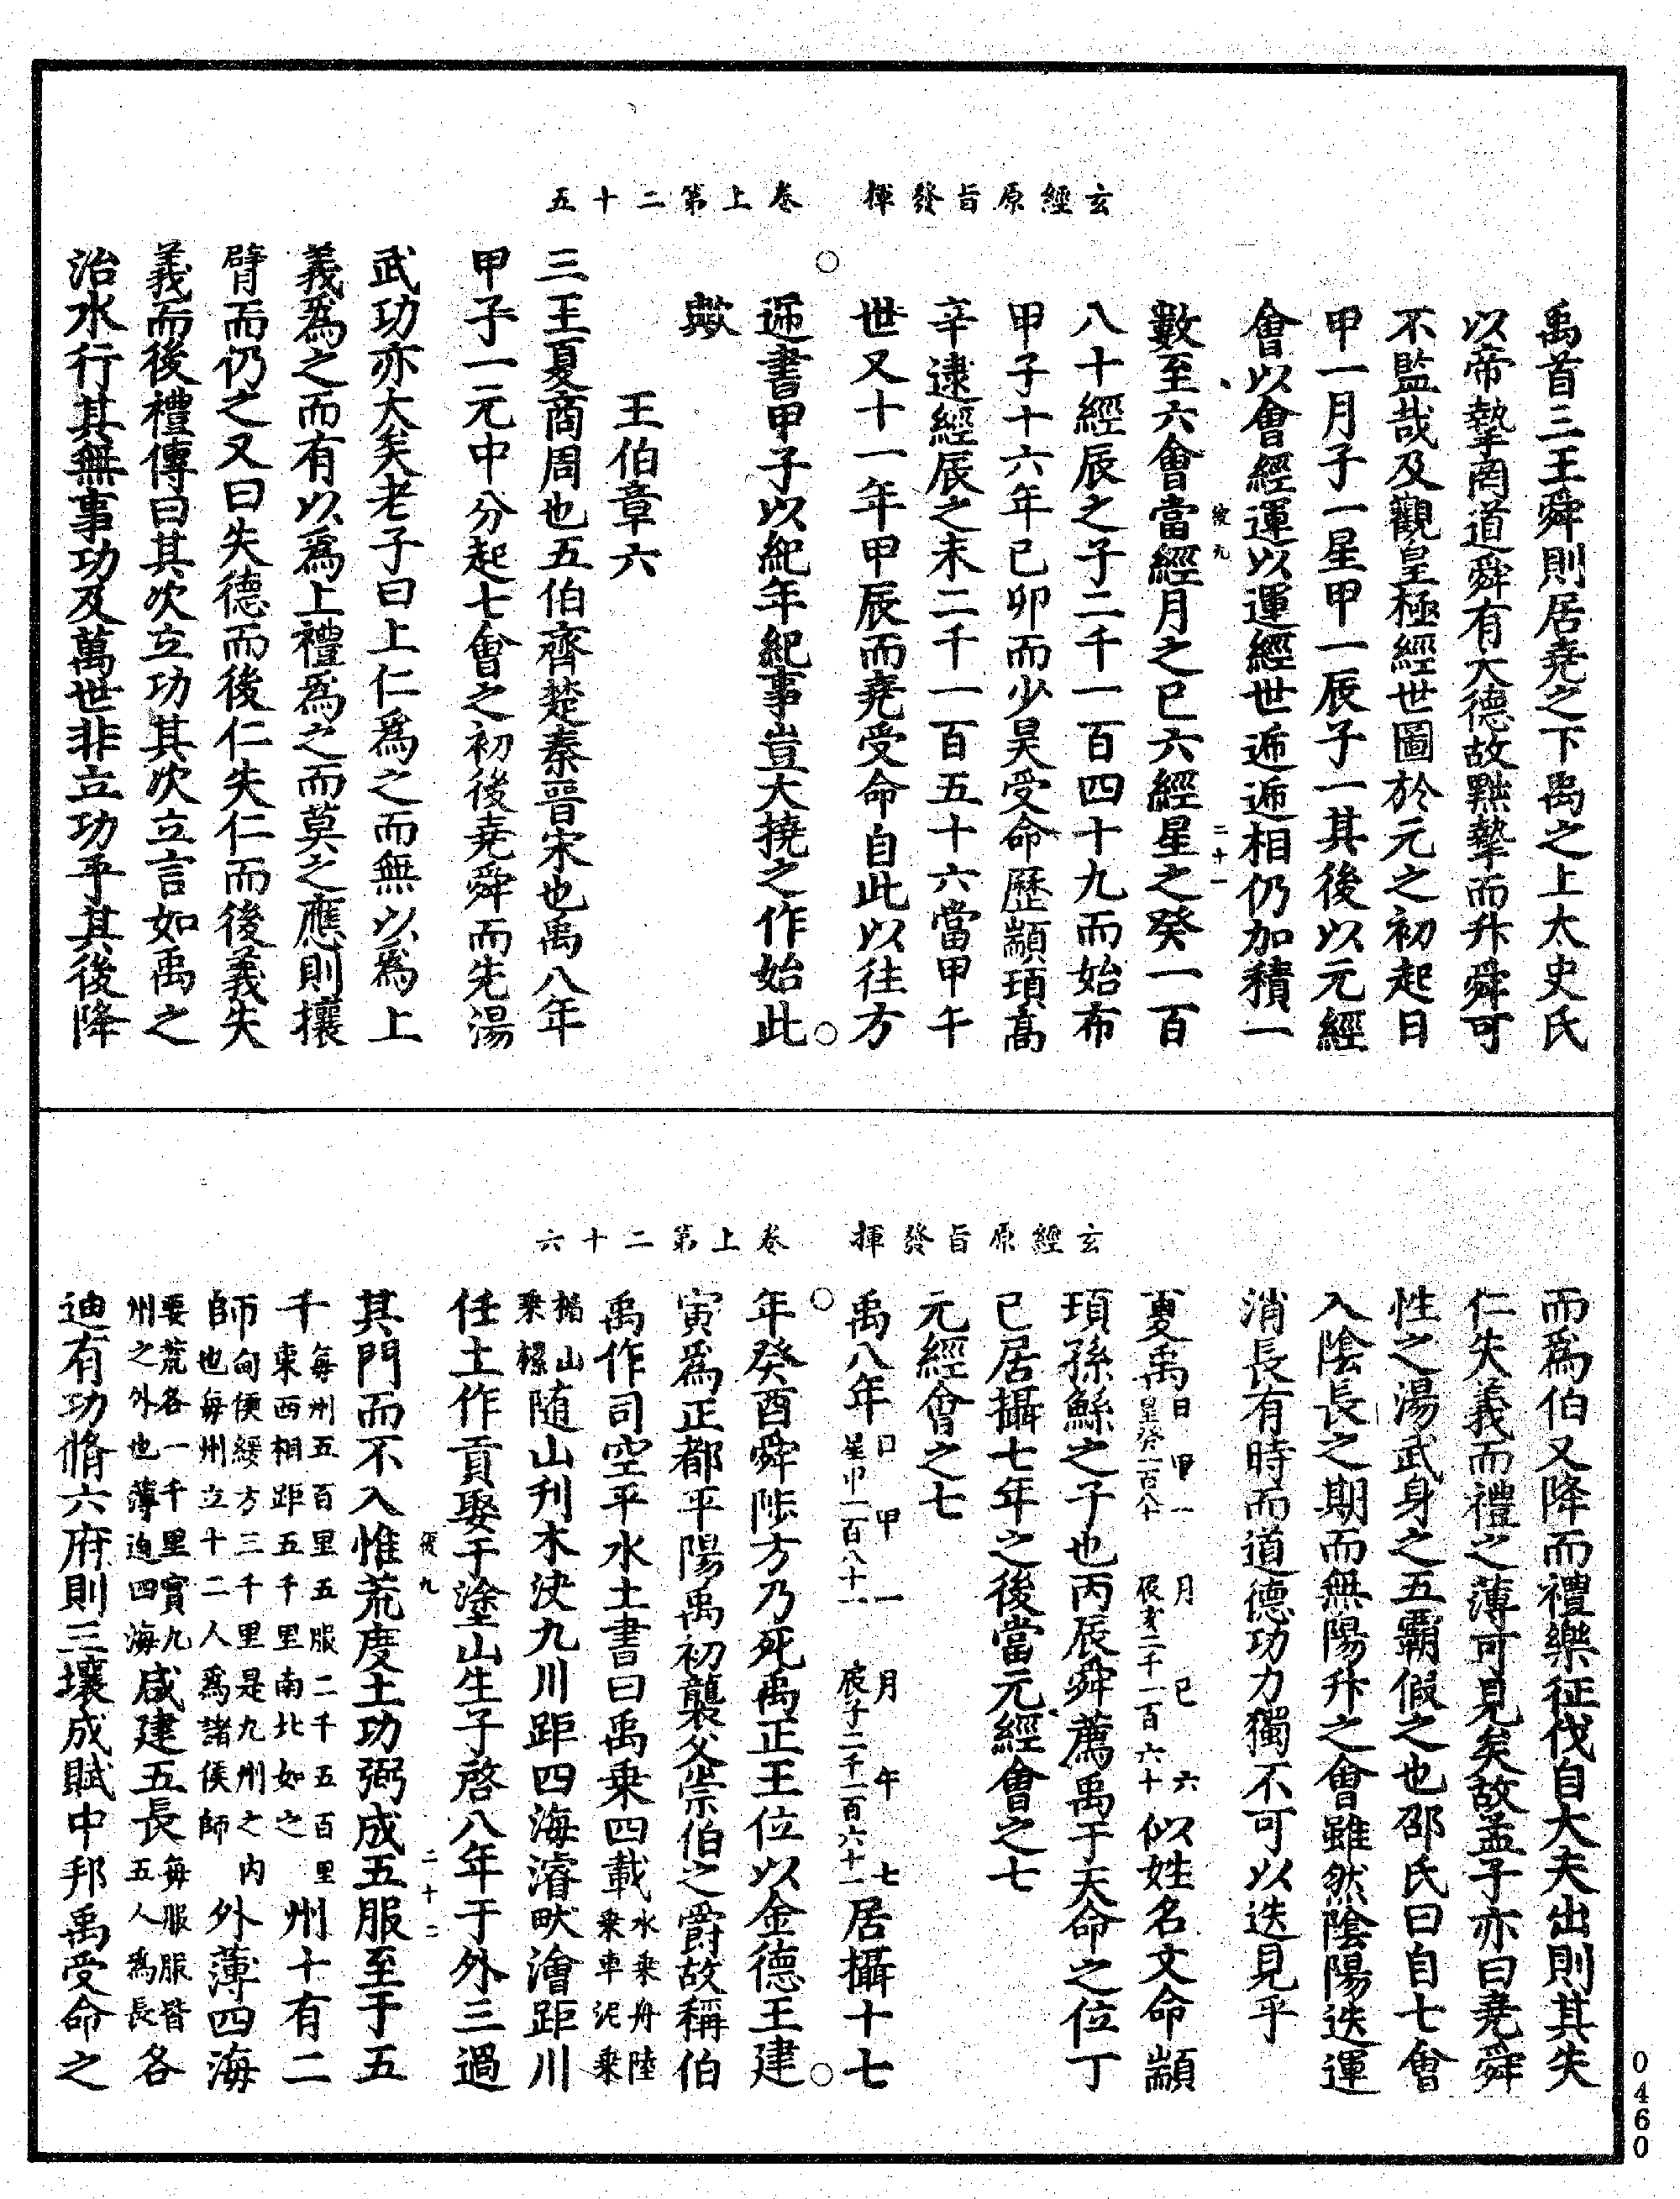 玄經原旨發揮　卷上第二十五
禹首三王舜則居堯之下禹之上太史氏
以帝摯罔道舜有大德故黜摯而升舜可
不監哉及觀皇極經世圖於元之初起日
甲一月子一星甲一辰子一其後以元經
會以會經運以運經世遞遞相仍加積一
數至六會當經月之巳六經星之癸一百
八十經辰之子二千一百四十九而始布
甲子十六年己卯而少昊受命歷顓頊高
辛逮經辰之未二千一百五十六當甲午
世又十一年甲辰而堯受命自此以往方
遞書甲子以紀年紀事豈大撓之作始此
歟
王伯章六
三王夏商周也五伯齊楚秦晉宋也禹八年
甲子一元中分起七會之初後堯舜而先湯
武功亦大矣老子曰上仁爲之而無以爲上
義爲之而有以爲上禮爲之而莫之應則攘
臂而仍之又曰失德而後仁失仁而後義失
義而後禮傳曰其次立功其次立言如禹之
治水行其無事功及萬世非立功乎其後降
玄經原旨發揮　卷上第二十六
而爲伯又降而禮樂征伐自大夫出則其失
仁失義而禮之薄可見矣故孟子亦曰堯舜
性之湯武身之五霸假之也邵氏曰自七會
入陰長之期而無陽升之會雖然陰陽迭運
消長有時而道德功力獨不可以迭見乎
夏禹日甲一　月巳六
星癸一百八十　辰亥二千一百六十似姓名文命顓
頊孫鯀之子也丙辰舜薦禹于天命之位丁
巳居攝七年之後當元經會之七
元經會之七
禹八年日甲一　月午七
星甲一百八十一　辰子二千一百六十一居攝十七
年癸酉舜陟方乃死禹正王位以金德王建
寅爲正都平陽禹初襲父崇伯之爵故稱伯
禹作司空平水土書曰禹乘四載水乘舟陸
乘車泥乘
橇山
乘樏隨山刊木決九川距四海濬畎澮距川
任土作貢娶于塗山生子啓八年于外三過
其門而不入惟荒度土功弼成五服至于五
千每州五百里五服二千五百里
東西相距五千里南北如之州十有二
師甸侯綏方三千里是九州之內
也每州立十二人爲諸侯師外薄四海
要荒各一千里實九
州之外也薄迫四海咸建五長每服服皆
五人爲長各
迪有功脩六府則三壤成賦中邦禹受命之
後九
二十一
後九
二十二
0460